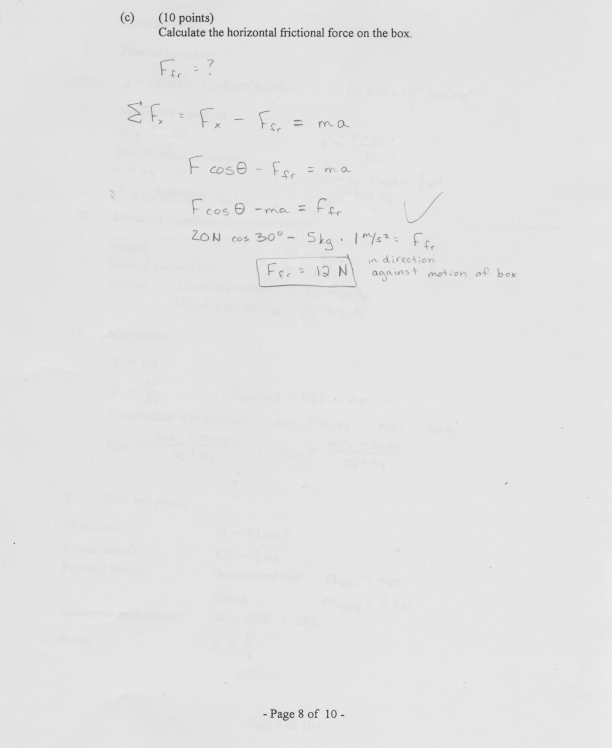 (c) (10 points)
Calculate the horizontal frictional force on the box.
Ffr = ?
ΣFx = Fx - Ffr = ma
F cosθ - Ffr = ma
F cosθ - ma = Ffr ✓
20N cos 30° - 5kg · 1 m/s² = Ffr
Ffr = 12 N in direction
against motion of box
- Page 8 of 10 -